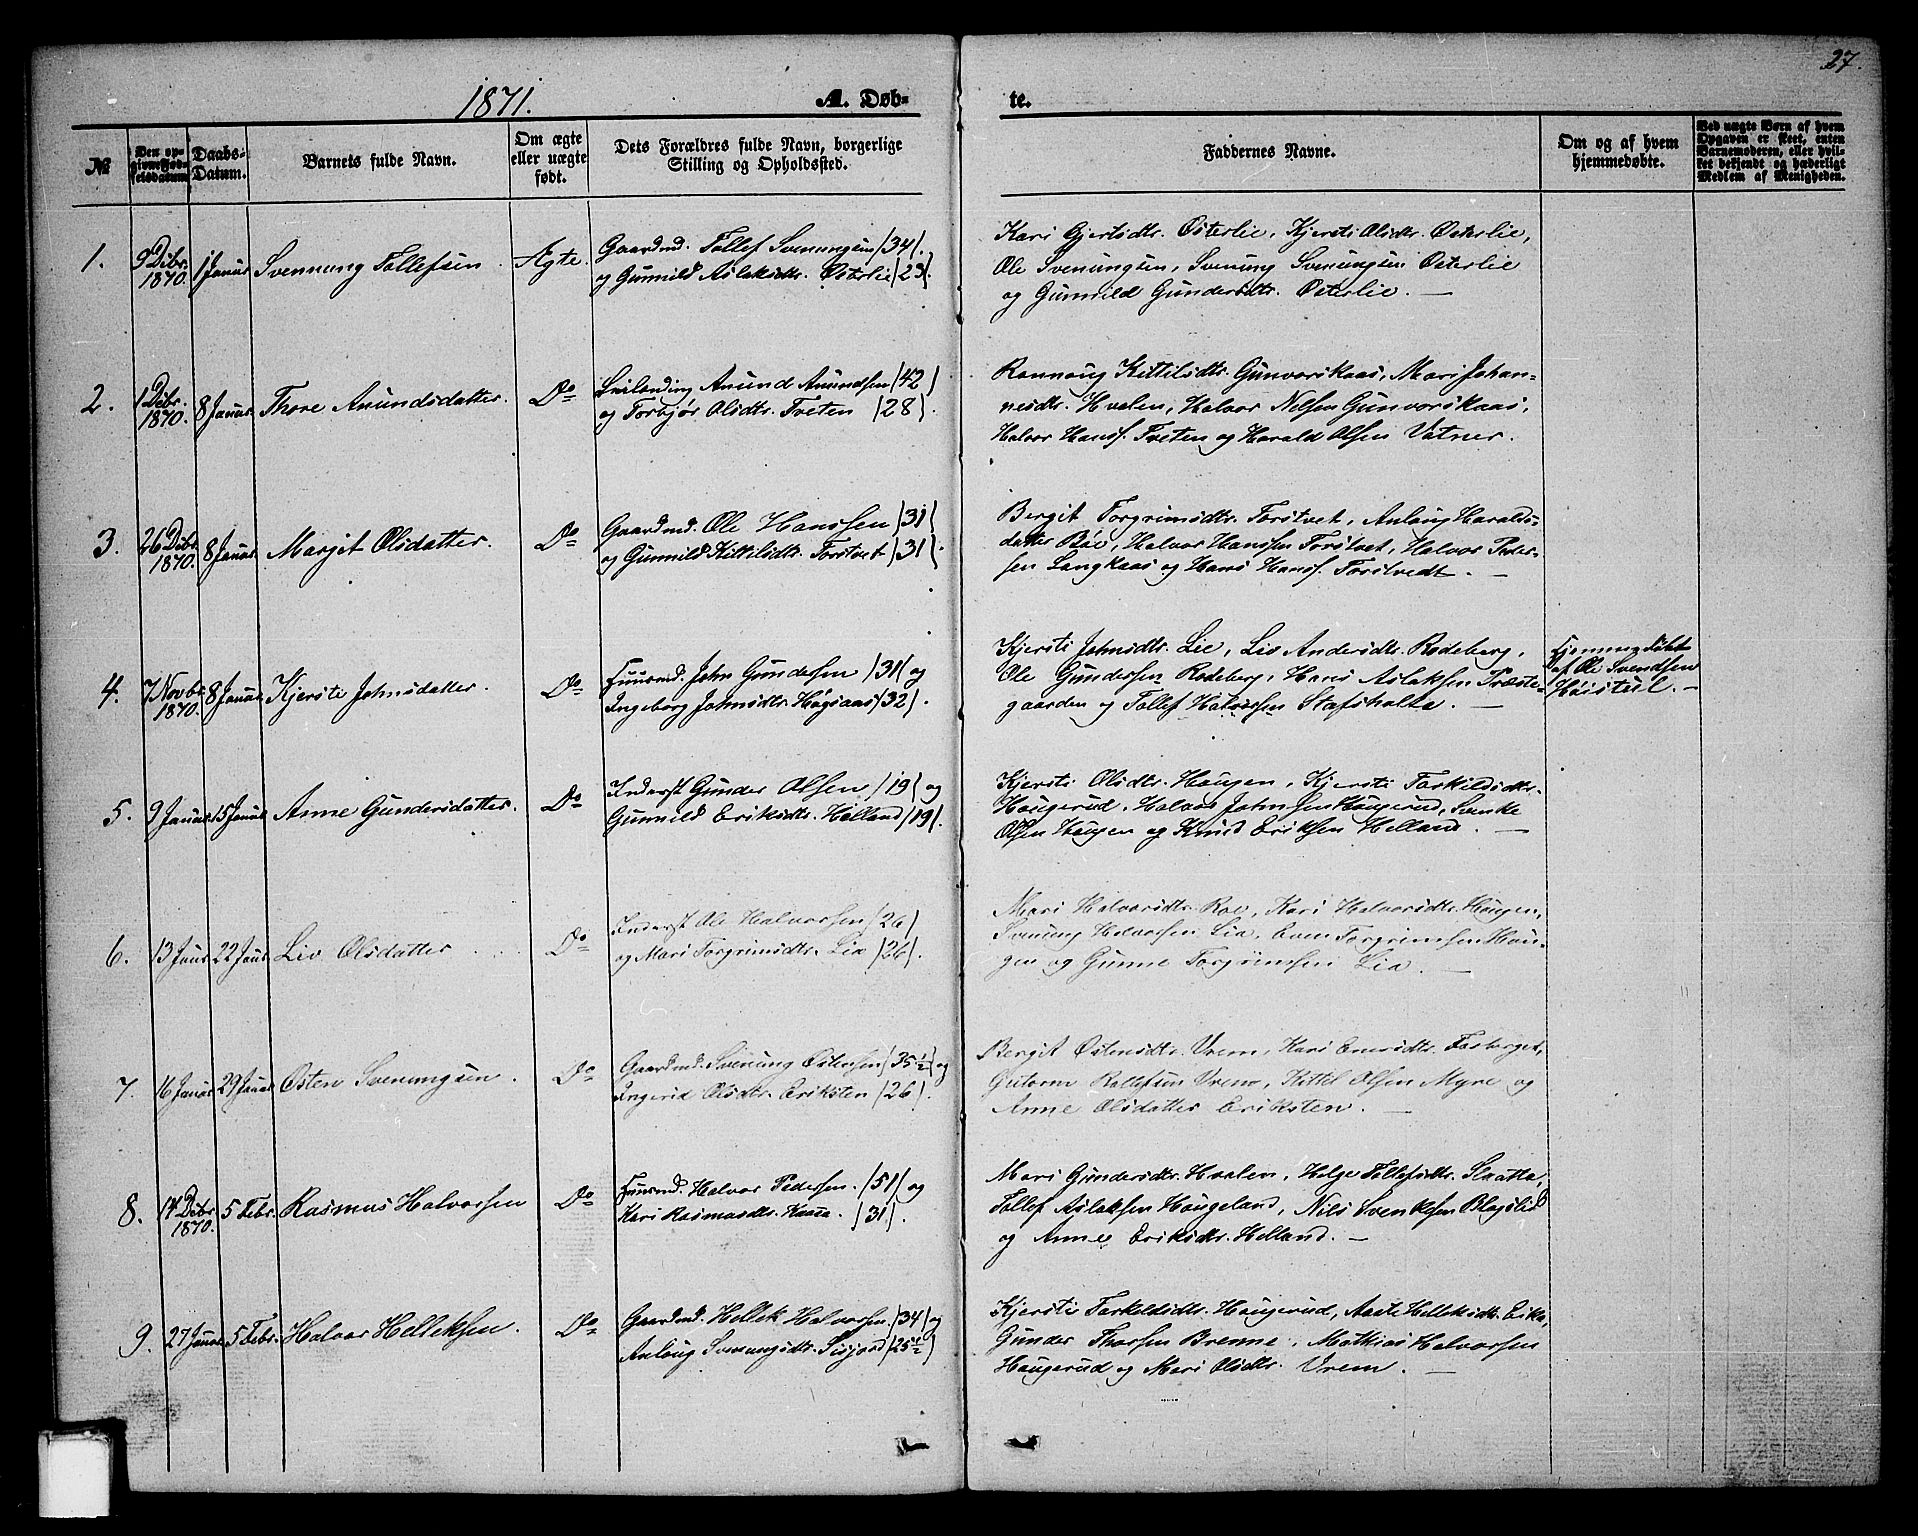 27.
1871.
A. Døb-
te.
№
Den opgivne Fødselsdatum
Daabs-Datum.
Barnets fulde Navn.
Om ægte eller uægte født.
Dets Forældres fulde Navn, borgerlige Stilling og Opholdssted.
Faddernes Navne.
Om og af hvem hjemmedøbte.
Ved uægte Børn af hvem Opgaven er skeet, enten Barnemoderen, eller hvilket bekjendt og hæderligt Medlem af Menigheden.
1. 9 Debr. 1870. 1 Januar Svennung Tollefsen Ægte.
Gaardmd. Tollef Svenungsen /34/.
og Gunnild Aslaksdtr. Österlie /23/.
Kari Gjertsdtr. Österlie, Kjersti Olsdtr. Österlie,
Ole Svenungsen, Svenung Svenungsen Österlie
og Gunnild Gundersdtr. Österlie. —
2. 1 Debr. 1870. 8 Januar Thore Anundsdatter. Do
Anund Anundsen /42/
og Torbjør Olsdtr. Tveten /28/.
Rannoug Kittilsdtr. Gunvorskaas, Mari Johan-
nesdtr. Hvalen, Halvor Nilsen Gunvorskaas,
Halvor Hanss. Tveten og Harald Olsen Vatner.
3. 26 Debr. 1870. 8 Januar Margit Olsdatter. Do
Gaardmd. Ole Hanssen /31/
og Gunnild Kittilsdtr. Torstvet /31/.
Bergit Torgrimsdtr. Torstvet, Anlaug Haralds-
datter Böe, Halvor Hanssen Torstvet, Halvor Peder-
sen Langkaas og Hans Hanss. Torstvedt. —
4. 7 Novbr. 1870. 8 Januar Kjersti Johnsdatter. Do
Huusmd. John Gundersen /31/ og
Ingeborg Johnsdtr. Högsaas /32/.
Kjersti Johnsdtr. Lie, Liv Andersdtr. Rodeberg,
Ole Gundersen Rodeberg, Hans Aslaksen Præste-
gaarden og Tollef Halvorsen Stafsholta. —
Hjemmedöbt
af Ole Svendsen
Höistul. —
5. 9 Januar 15 Januar Anne Gundersdatter. Do
Inderst Gunder Olsen /19/ og
Gunnild Eriksdtr. Helland /19/.
Kjersti Olsdtr. Haugen, Kjersti Torkildsdtr.
Haugerud, Halvor Johnsen Haugerud, Svenke
Olsen Haugen og Knud Eriksen Helland. —
6. 13 Januar 22 Januar Liv Olsdatter Do
Inderst Ole Halvorsen /26/
og Mari Torgrimsdtr. Lia /26/.
Mari Halvorsdtr. Roe, Kari Halvorsdtr. Haugen,
Svenung Halvorsen Lia, Even Torgrimsen Hau-
gen og Gunne Torgrimsen Lia. —
7. 16 Januar 29 Januar Östen Svenungsen. Do
Gaardmd. Svenung Östensen /35½/ og
Ingerid Olsdtr. Eriksten /26/.
Bergit Östensdtr. Vrem, Kari Torberget,
Gutorm Rollefsen Vrem, Kittel Olsen Myre og
Anne Olsdatter Eriksten. —
8. 14 Debr. 1870. 5 Febr. Rasmus Halvorsen Do
Huusmd. Halvor Pedersen. /51/ og
Kari Rasmusdtr. Kaasa. /31/.
Mari Gundersdtr. Hvalen, Helge Tollefsdtr. Slaatta,
Tollef Aslaksen Haugeland, Nils Svenksen Blegslid
og Anne Eriksdtr. Helland. —
9. 27 Januar 5 Febr. Halvor Helleksen. Do
Gaardmd. Hellek Halvorsen /34/ og
Anlaug Svenungsdtr. Sisjord /25½/
Kjersti Torkeldsdtr. Haugerud, Aaste Helleksdtr. Erika,
Gunder Thorsen Brenne, Mathias Halvorsen
Haugerud og Mari Olsdtr. Vrem. —